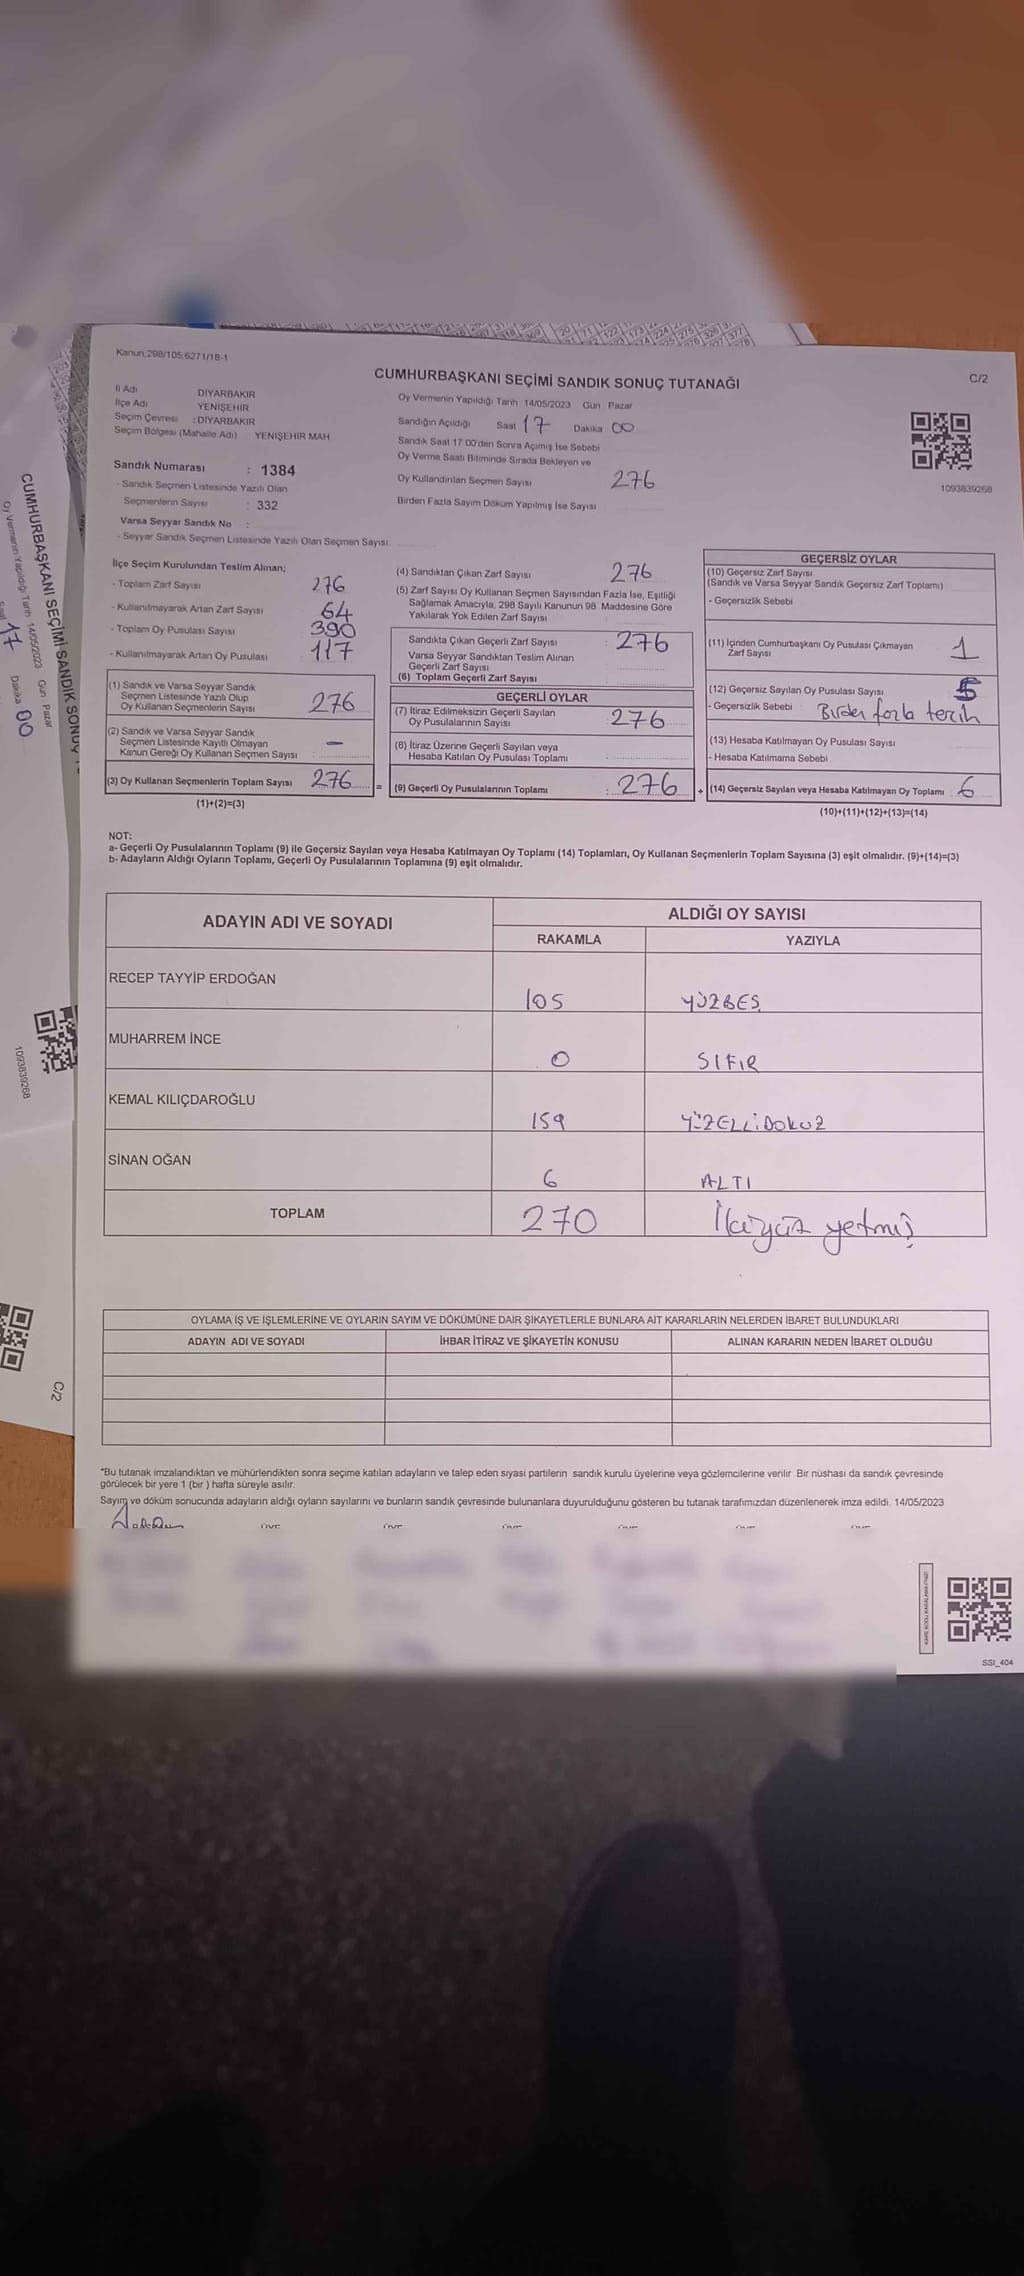 Kanun 298/105 6271/18-1
CUMHURBAŞKANI SEÇİMİ SANDIK SONUÇ TUTANAĞI
C/2
İl Adı DİYARBAKIR
İlçe Adı YENİŞEHİR
Seçim Çevresi : DİYARBAKIR
Seçim Bölgesi (Mahalle Adı) YENİŞEHİR MAH.
Sandık Numarası : 1384
- Sandık Seçmen Listesinde Yazılı Olan
Seçmenlerin Sayısı : 332
Varsa Seyyar Sandık No :
- Seyyar Sandık Seçmen Listesinde Yazılı Olan Seçmen Sayısı
Oy Vermenin Yapıldığı Tarih 14/05/2023 Gün Pazar
Sandığın Açıldığı Saat 17 Dakika 00
Sandık Saat 17 00'den Sonra Açılmış İse Sebebi
Oy Verme Saati Bitiminde Sırada Bekleyen ve
Oy Kullandırılan Seçmen Sayısı 276
Birden Fazla Sayım Döküm Yapılmış İse Sayısı
1093839268
İlçe Seçim Kurulundan Teslim Alınan;
- Toplam Zarf Sayısı 276
- Kullanılmayarak Artan Zarf Sayısı 64
- Toplam Oy Pusulası Sayısı 390
- Kullanılmayarak Artan Oy Pusulası 117
(1) Sandık ve Varsa Seyyar Sandık
Seçmen Listesinde Yazılı Olup
Oy Kullanan Seçmenlerin Sayısı 276
(2) Sandık ve Varsa Seyyar Sandık
Seçmen Listesinde Kayıtlı Olmayan
Kanun Gereği Oy Kullanan Seçmen Sayısı : –
(3) Oy Kullanan Seçmenlerin Toplam Sayısı 276
(1)+(2)=(3)
=
(4) Sandıktan Çıkan Zarf Sayısı : 276
(5) Zarf Sayısı Oy Kullanan Seçmen Sayısından Fazla İse, Eşitliği
Sağlamak Amacıyla, 298 Sayılı Kanunun 98. Maddesine Göre
Yakılarak Yok Edilen Zarf Sayısı
Sandıkta Çıkan Geçerli Zarf Sayısı : 276
Varsa Seyyar Sandıktan Teslim Alınan
Geçerli Zarf Sayısı
(6) Toplam Geçerli Zarf Sayısı
GEÇERLİ OYLAR
(7) İtiraz Edilmeksizin Geçerli Sayılan
Oy Pusulalarının Sayısı : 276
(8) İtiraz Üzerine Geçerli Sayılan veya
Hesaba Katılan Oy Pusulası Toplamı
(9) Geçerli Oy Pusulalarının Toplamı : 276
+
GEÇERSİZ OYLAR
(10) Geçersiz Zarf Sayısı
(Sandık ve Varsa Seyyar Sandık Geçersiz Zarf Toplamı)
- Geçersizlik Sebebi
(11) İçinden Cumhurbaşkanı Oy Pusulası Çıkmayan
Zarf Sayısı 1
(12) Geçersiz Sayılan Oy Pusulası Sayısı 5
- Geçersizlik Sebebi : Birden fazla tercih
(13) Hesaba Katılmayan Oy Pusulası Sayısı
- Hesaba Katılmama Sebebi
(14) Geçersiz Sayılan veya Hesaba Katılmayan Oy Toplamı : 6
(10)+(11)+(12)+(13)=(14)
NOT:
a- Geçerli Oy Pusulalarının Toplamı (9) ile Geçersiz Sayılan veya Hesaba Katılmayan Oy Toplamı (14) Toplamları, Oy Kullanan Seçmenlerin Toplam Sayısına (3) eşit olmalıdır. (9)+(14)=(3)
b- Adayların Aldığı Oyların Toplamı, Geçerli Oy Pusulalarının Toplamına (9) eşit olmalıdır.
ADAYIN ADI VE SOYADI ALDIĞI OY SAYISI
RAKAMLA YAZIYLA
RECEP TAYYİP ERDOĞAN 105 YÜZBEŞ
MUHARREM İNCE 0 SIFIR
KEMAL KILIÇDAROĞLU 159 YÜZELLİDOKUZ
SİNAN OĞAN 6 ALTI
TOPLAM 270 İkiyüz yetmiş
OYLAMA İŞ VE İŞLEMLERİNE VE OYLARIN SAYIM VE DÖKÜMÜNE DAİR ŞİKAYETLERLE BUNLARA AİT KARARLARIN NELERDEN İBARET BULUNDUKLARI
ADAYIN ADI VE SOYADI İHBAR İTİRAZ VE ŞİKAYETİN KONUSU ALINAN KARARIN NEDEN İBARET OLDUĞU
*Bu tutanak imzalandıktan ve mühürlendikten sonra seçime katılan adayların ve talep eden siyasi partilerin sandık kurulu üyelerine veya gözlemcilerine verilir Bir nüshası da sandık çevresinde
görülecek bir yere 1 (bir ) hafta süreyle asılır.
Sayım ve döküm sonucunda adayların aldığı oyların sayılarını ve bunların sandık çevresinde bulunanlara duyurulduğunu gösteren bu tutanak tarafımızdan düzenlenerek imza edildi. 14/05/2023
SSI_404
CUMHURBAŞKANI SEÇİMİ SANDIK SONUÇ
Oy Vermenin Yapıldığı Tarih 14/05/2023 Gün Pazar
Saat 17 Dakika 00
1093839268
C/2